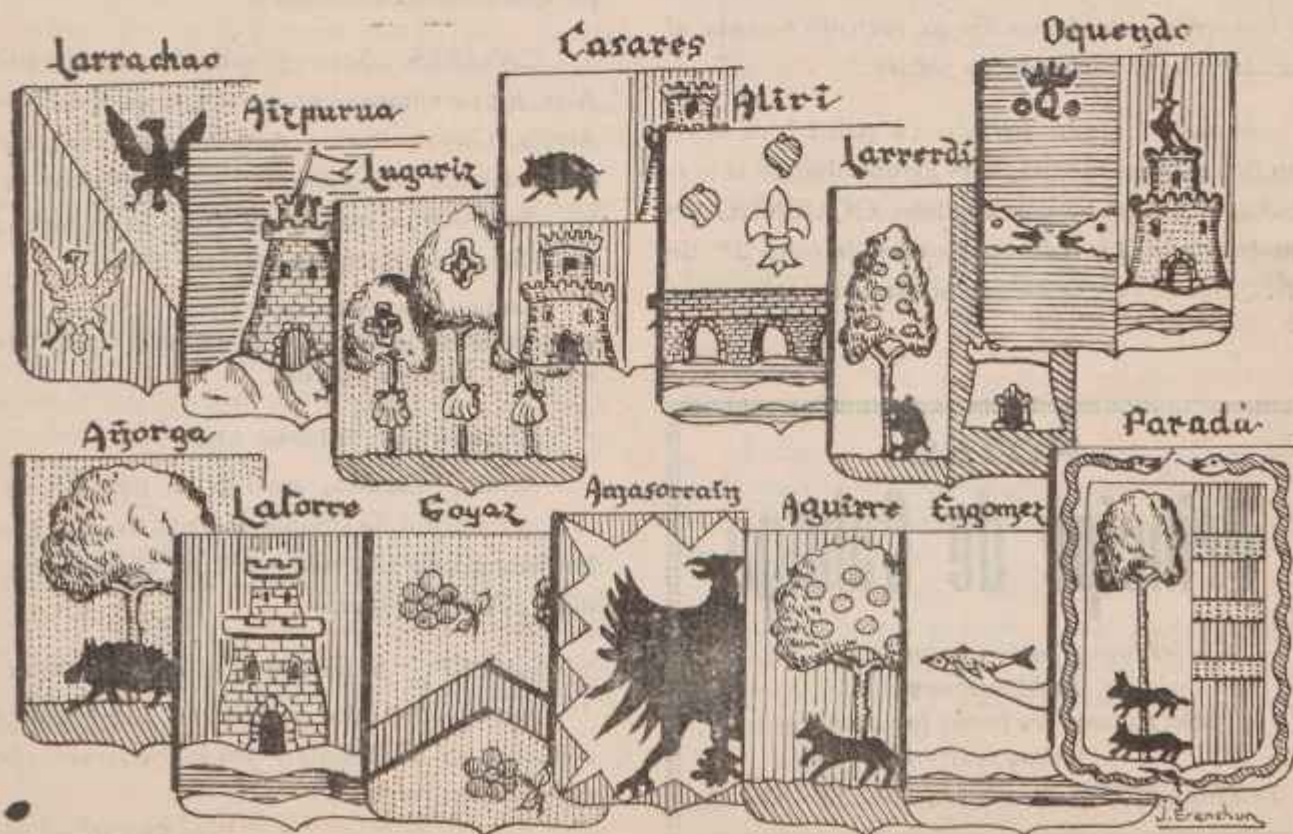 Larrachao
Aizpurua
Lugariz
Casares
Aliri
Larrerdi
Oquendo
Q
Añorga
Latorre
Goyaz
Amasorrain
Aguirre
Engomez
Paradu
J. Erenchun